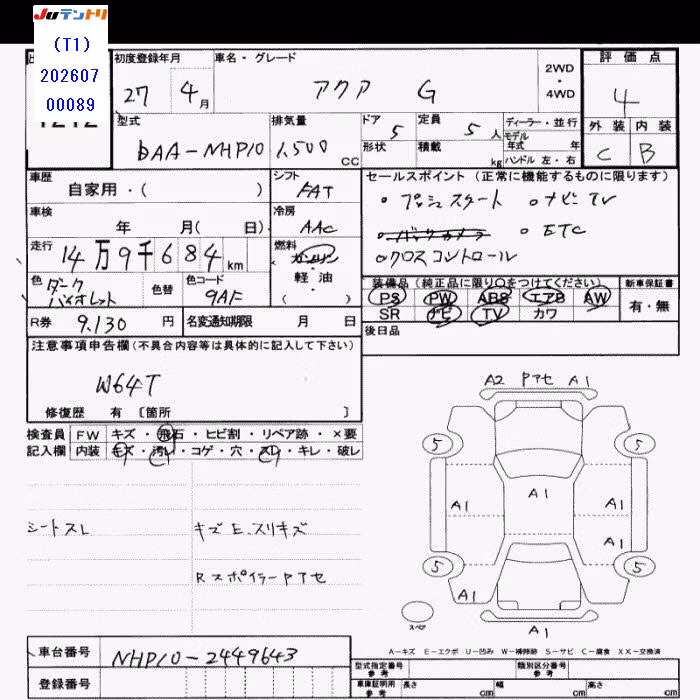 Juテントリ
(T1)
202607
00089
初度登録年月
車名・グレード
評価点
27年 4月
アクア G
2WD
・
4WD
4
型式
排気量
ドア 5
定員 5人
ディーラー・並行
外装 内装
DAA-NHP10
1,500 CC
形状
積載 kg
モデル年式 年
ハンドル 左・右
C B
車歴
自家用・( )
シフト
FAT
セールスポイント (正常に機能するものに限ります)
・プッシュスタート ・ナビTV
車検
年 月( 日)
冷房
AAC
・バックカメラ ・ETC
走行
14万9千684km
燃料
ガソリン
・
軽油
( )
・クロスコントロール
色
ダーク
バイオレット
色替
色コード
9AF
装備品(純正品に限り○をつけてください)
新車保証書
PS PW ABS エアB AW
有・無
SR ナビ TV カワ
R券 9,130円
名変通知期限 月 日
後日品
注意事項申告欄(不具合内容等は具体的に記入して下さい)
W64T
修復歴 有 〔箇所 〕
検査員
記入欄
FW キズ・飛石・ヒビ割・リペア跡・×要
内装 キズ・汚レ・コゲ・穴・スレ・キレ・破レ
シートスレ
キズ E、スリキズ
Rスポイラー Pアセ
A2 Pアセ A1
5 5
A1 A1 A1
A1
5 5
A1
スペア
A1
A-キズ E-エクボ U-凹み W-補修跡 S-サビ C-腐食 XX-交換済
車台番号 NHP10-2449643
登録番号
型式指定番号
参考
類別区分番号
参考
車庫証明用
参考
長さ cm
幅 cm
高さ cm